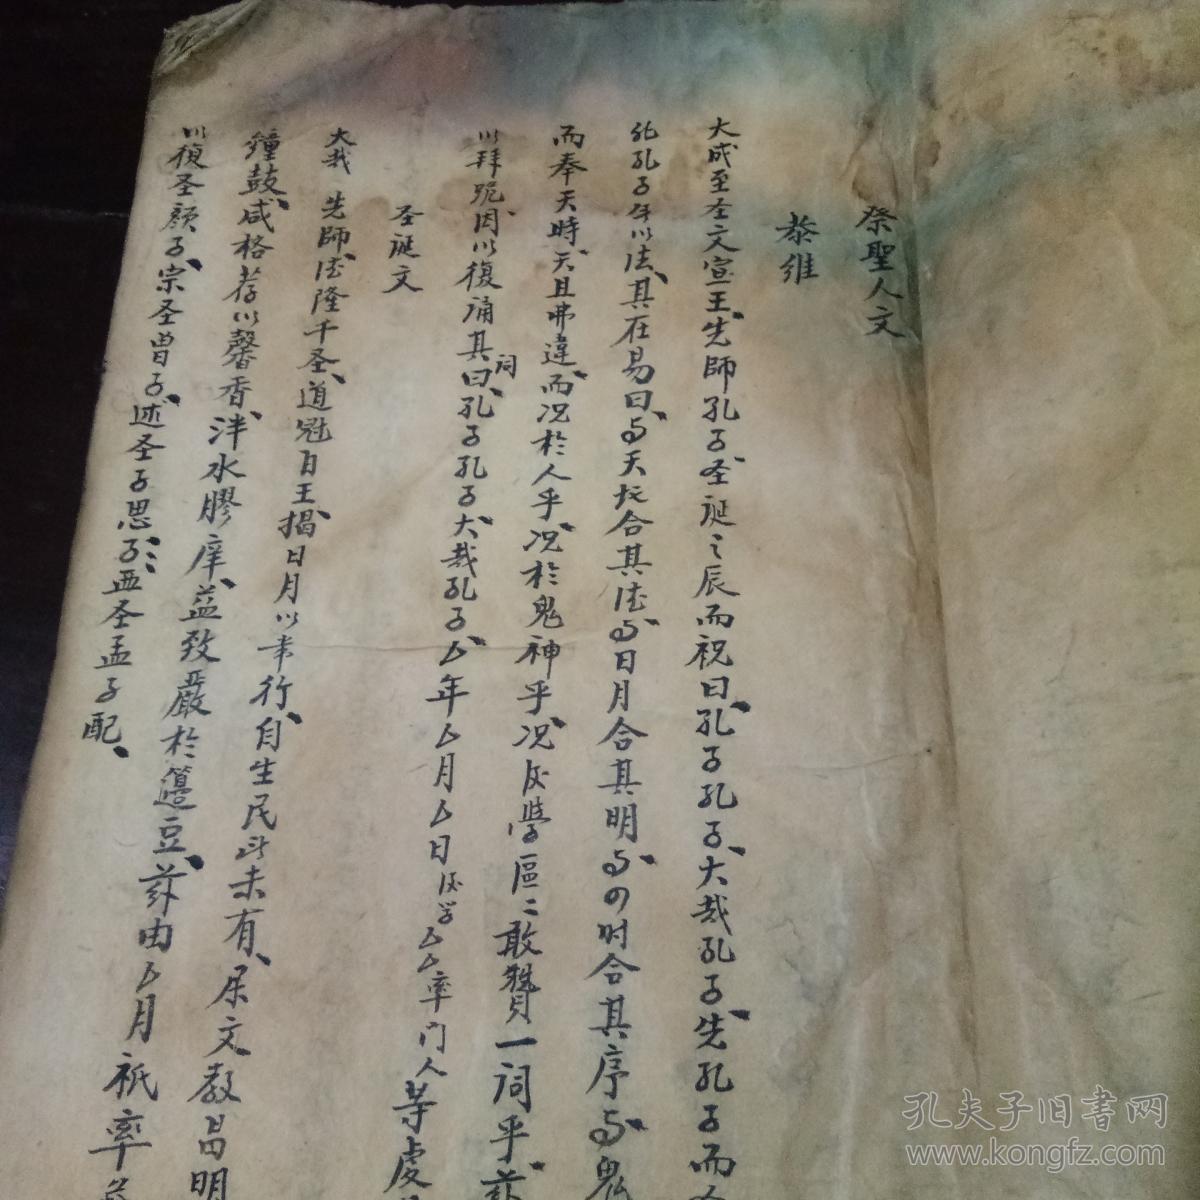 祭聖人文
恭維
大成至圣文宣王、先師孔子圣诞之辰而祝曰、孔子孔子、大哉孔子、先孔子而
孔子以法、其在易曰、与天地合其法、与日月合其明、与四时合其序、与鬼
而奉天時、天且弗違、而况於人乎、况於鬼神乎、况後學區區敢贊一詞乎、茲
以拜跪、因以復誦其詞曰、孔子孔子、大哉孔子、厶年厶月厶日後学厶厶率门人等虔
圣诞文
大哉 先師、法隆千圣、道冠百王、揭日月以行、自生民此未有、文教昌明
鐘鼓、咸格荐以馨香、泮水膠庠、益致嚴於籩豆、茲由厶月祇率
以復圣顔子、宗圣曾子、述圣子思子、亞圣孟子配、
孔夫子旧書网
www.kongfz.com